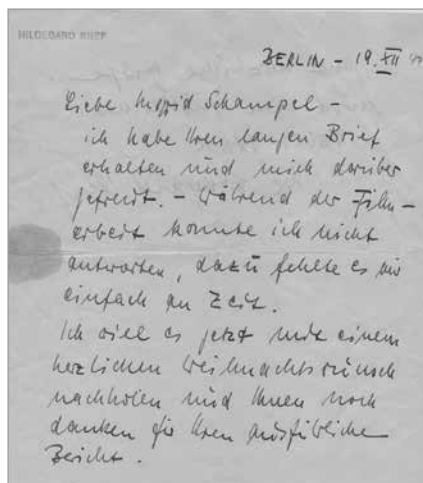 HILDEGARD KNEF
BERLIN – 19. XII
Liebe Ingrid Schampel –
ich habe Ihren langen Brief
erhalten und mich darüber
gefreut. – Während der Film–
arbeit konnte ich nicht
antworten, dazu fehlte es mir
einfach an Zeit.
Ich will es jetzt mit einem
herzlichen Weihnachtswunsch
nachholen und Ihnen noch
danken für Ihren ausführlichen
Bericht.